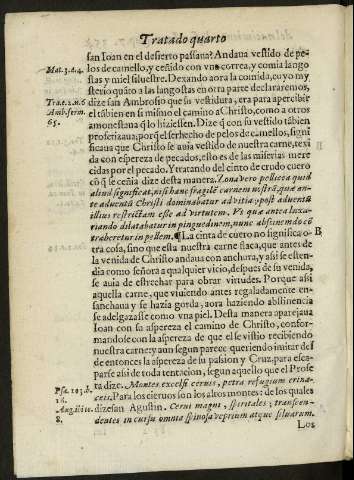 Tratado quarto
san Ioan en el desierto passaua? Andaua vestido de pe-
los de camello, y ceñido con vna correa, y comia lango
Mat. 3. a. 4.
stas y miel siluestre. Dexando aora la comida, cuyo my
sterio quãto a las langostas en otra parte declararemos,
Trat. 2. n. 6
dize san Ambrosio que su vestidura, era para apercibir
Amb. serm.
el tãbien en si mismo el camino a Christo, como a otros
65.
amonestaua q̃ lo hiziessen. Dize q̃ con su vestido tãbien
profetizaua; porq̃ el ser hecho de pelos de camellos, signi
ficaua que Christo se auia vestido de nuestra carne, texi
da con espereza de pecados, esto es de las miserias mere
cidas por el pecado. Y tratando del cinto de crudo cuero
cõ q̃ se ceñia dize desta manera. Zona vero pellicea quid
aliud significat, nisi hanc fragilẽ carnem nostrã, quæ an-
te aduentũ Christi dominabatur ad vitia; post aduentũ
illius restrictam esse ad virtutem. Vt quæ antea luxu-
riando dilatabatur in pinguedinem, nunc abstinendo cõ
traheretur in pellem. ¶ La cinta de cuero no significa o-
B
tra cosa, sino que esta nuestra carne flaca, que antes de
la venida de Christo andaua con anchura, y assi se esten-
dia como señora a qualquier vicio, despues de su venida,
se auia de estrechar para obrar virtudes. Porque assi
aquella carne, que viuiendo antes regaladamente en-
sanchaua y se hazia gorda, aora haziendo abstinencia
se adelgazasse como vna piel. Desta manera aparejaua
Ioan con su aspereza el camino de Christo, confor-
mandose con la aspereza de que el se vistio recibiendo
nuestra carne: y aun segun parece queriendo imitar de s
de entonces la aspereza de su passion y Cruz. para esca-
parse assi de toda tentacion, segun aquello que el Profe
Psa. 103. b.
ta dize. Montes excelsi ceruis, petra refugium erina-
18.
ceis. Para los cieruos son los altos montes: de los quales
dize san Agustin. Cerui magni, spiritales; transcen-
8.
dentes in cursu omnia spinosa veprium atque siluarum.
Los